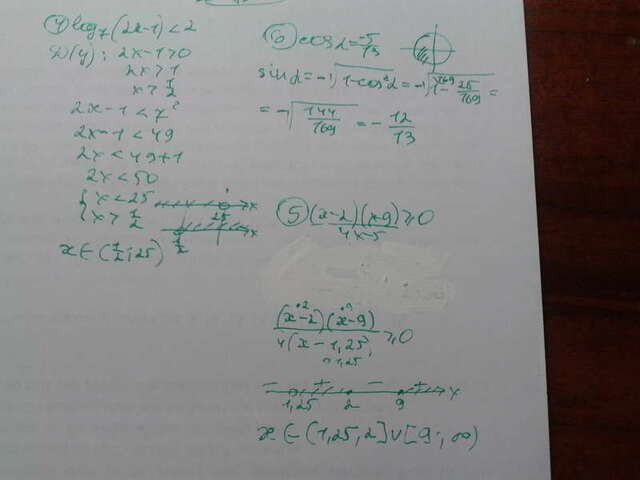 ④ log₇(2x-1) < 2
D(y): 2x-1>0
2x>1
x>1/2
2x-1 < 7²
2x-1 < 49
2x < 49+1
2x < 50
{ x < 25
x > 1/2
x
25
x
1/2
x ∈ (1/2; 25)
⑥ cos α = -5/13
sin α = -√(1-cos²α) = -√(1 - 25/169) =
= -√(144/169) = -12/13
⑤ (x-2)(x-9)/(4x-5) ≥ 0
(x-2)(x-9)/4(x-1,25) ≥ 0
- + - + x
1,25 2 9
x ∈ (1,25, 2] ∪ [9; ∞)